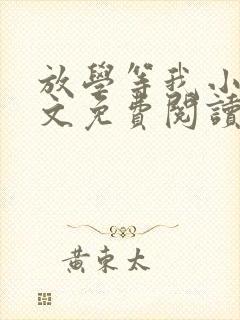 放學等我 小
文免費閱讀
黃東太